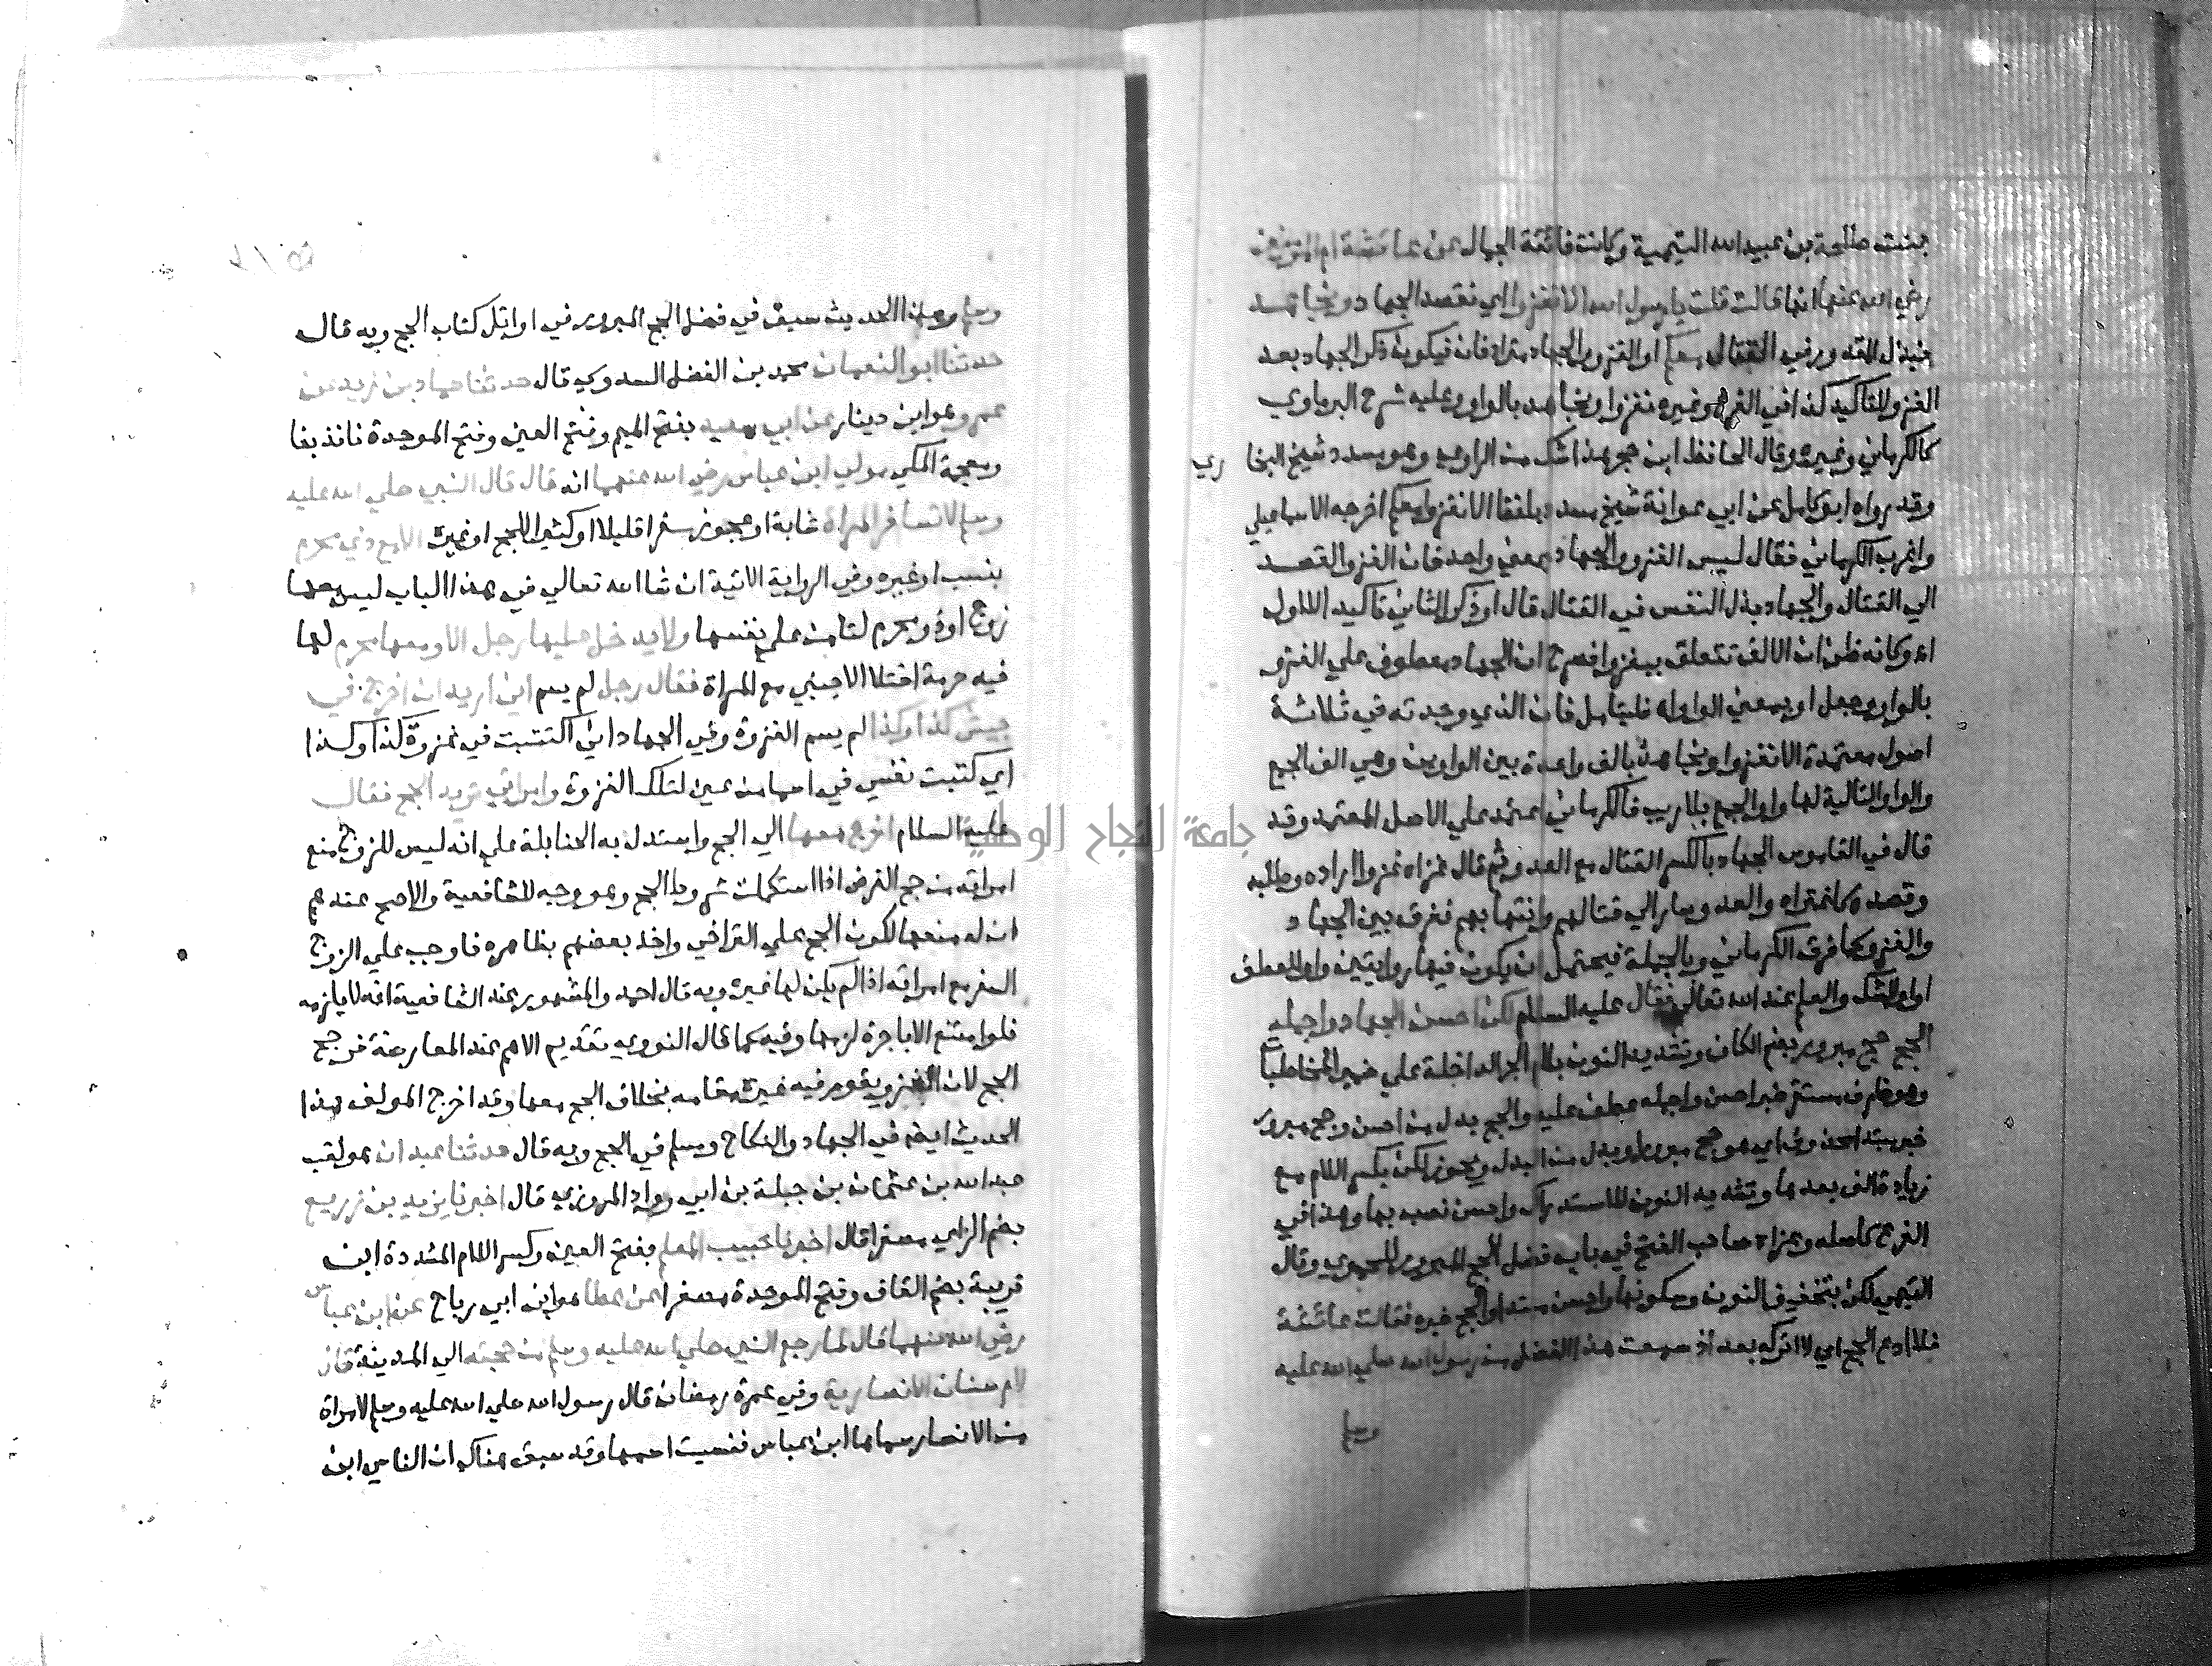 بنت طلحة بن عبيد الله التيمية وكانت فائقة الجمال عن عائشة ام المؤمنين
رضي الله عنها انها قالت قلت يا رسول الله الا نغزوا اي نقصد الجهاد ونجاهد
نبذل المقدور في القتال معكم او الغزو والجهاد مترادفان فيكون ذكر الجهاد بعد
الغزو للتاكيد كذا في الفرع وغيره نغزوا ونجاهد بالواو وعليه شرح البرماوي
كالكرماني وغيره وقال الحافظ ابن حجر هذا شك من الراوي وهو مسدد شيخ البخاري
وقد رواه ابو كامل عن ابي عوانة شيخ مسدد بلفظ الا نغزوا معكم اخرجه الاسماعيلي
واغرب الكرماني فقال ليس الغزو والجهاد بمعني واحد فان الغزو القصد
الي القتال والجهاد بذل النفس في القتال قال او ذكر الثاني تاكيد للاول
اه وكانه ظن ان الالف تتعلق بيغزوا فصرح ان الجهاد معطوف علي الغزو
بالواو وجعل او بمعني الواو اه فليتامل فان الذي وجدته في ثلاثة
اصول معتمدة الا نغزوا ونجاهد بالف واحدة بين الواوين وهي الف الجمع
والواو التالية لها واو الجمع بلا ريب فالكرماني اعتمد علي الاصل المعتمد وقد
قال في القاموس الجهاد بالكسر القتال مع العدو ثم قال غزاه غزوا اراده وطلبه
وقصده كاغتزاه والعدو سار الي قتالهم وانتهابهم ففرق بين الجهاد
والغزو كما فرق الكرماني وبالجملة فيحتمل ان يكون فيها روايتين واو العطف
او او الشك والعلم عند الله تعالي فقال عليه السلام لكن احسن الجهاد واجمله
الحج حج مبرور بضم الكاف وتشديد النون بلام الجر الداخلة علي ضمير المخاطبات
وهو ظرف مستقر خبر احسن واجمله عطف عليه والحج بدل من احسن وحج مبرور
خبر مبتدا محذوف اي هو حج مبرور او بدل من البدل ويجوز لكن بكسر اللام مع
زيادة الف بعدها وتشديد النون للاستدراك واحسن نصب بها وهذا في
الفرع كاصله وعزاه صاحب الفتح في باب فضل الحج المبرور للحموي وقال
التيمي لكن بتخفيف النون وسكونها واحسن مبتدا والحج خبره فقالت عائشة
فلا ادع الحج اي لا اتركه بعد اذ سمعت هذا الفضل من رسول الله صلي الله عليه
وسلم
وسلم وهذا الحديث سبق في فضل الحج المبرور في اوايل كتاب الحج وبه قال
حدثنا ابو النعمان محمد بن الفضل السدوسي قال حدثنا حماد بن زيد عن
عمرو هو ابن دينار عن ابي معبد بفتح الميم وفتح العين وفتح الموحدة نافذ بفا
ومعجمة المكي مولي ابن عباس رضي الله عنهما انه قال قال النبي صلي الله عليه
وسلم لا تسافر المراة شابة او عجوز سفرا قليلا او كثيرا للحج او غيره الا مع ذي محرم
بنسب او غيره وفي الرواية الاتية ان شا الله تعالي في هذا الباب ليس معها
زوج او ذو محرم لتامن علي نفسها ولا يدخل عليها رجل الا ومعها محرم لها
فيه حرمة اختلا الاجنبي مع المراة فقال رجل لم يسم اني اريد ان اخرج في
جيش كذا وكذا لم يسم الغزوة وفي الجهاد اني اكتتبت في غزوة كذا وكذا
اي كتبت نفسي في اسما من عين لتلك الغزوة وامراتي تريد الحج فقال
عليه السلام اخرج معها الي الحج واستدل به الحنابلة علي انه ليس للزوج منع
امراته من حج الفرض اذا استكملت شروط الحج وهو وجه للشافعية والاصح عندهم
ان له منعها لكون الحج علي التراخي واخذ بعضهم بظاهره فاوجب علي الزوج
السفر مع امراته اذا لم يكن لها غيره وبه قال احمد والمشهور عند الشافعية انه لا يلزمه
فلو امتنع الا باجرة لزمها وفيه كما قال النووي تقديم الاهم عند المعارضة فرجح
الحج لان الغزو يقوم فيه غيره مقامه بخلاف الحج معها وقد اخرج المولف هذا
الحديث ايضا في الجهاد والنكاح ومسلم في الحج وبه قال حدثنا عبدان هو لقب
عبد الله بن عثمان بن جبلة بن ابي رواد المروزي قال اخبرنا يزيد بن زريع
بضم الزاي مصغرا قال اخبرنا حبيب المعلم بفتح العين وكسر اللام المشددة ابن
قريبة بضم القاف وفتح الموحدة مصغرا عن عطا هو ابن ابي رباح عن ابن عباس
رضي الله عنهما قال لما رجع النبي صلي الله عليه وسلم من حجته الي المدينة قال
لام سنان الانصارية وفي عمرة رمضان قال رسول الله صلي الله عليه وسلم لامراة
من الانصار سماها ابن عباس فنسيت اسمها وقد سبق هناك ان الناسي ابن
جامعة النجاح الوطنية